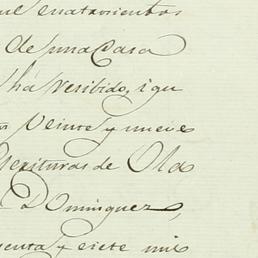 que cuatrocientos
de una Casa
ha resibido, i qu
Veinte y nueve
Escrituras de Ola
Dominguez,
cuenta y siete mil